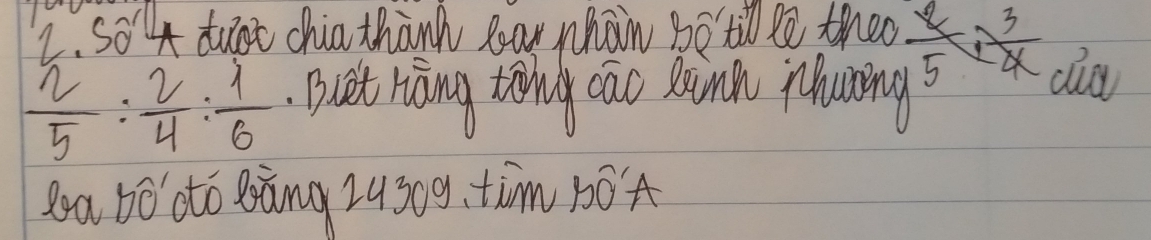 2. Số A được chia thành ba phần số tỉ lệ theo
2/5 : 2/4 : 1/6 . Biết rằng tổng các bình phương của
ba số đó bằng 24309. tìm số A